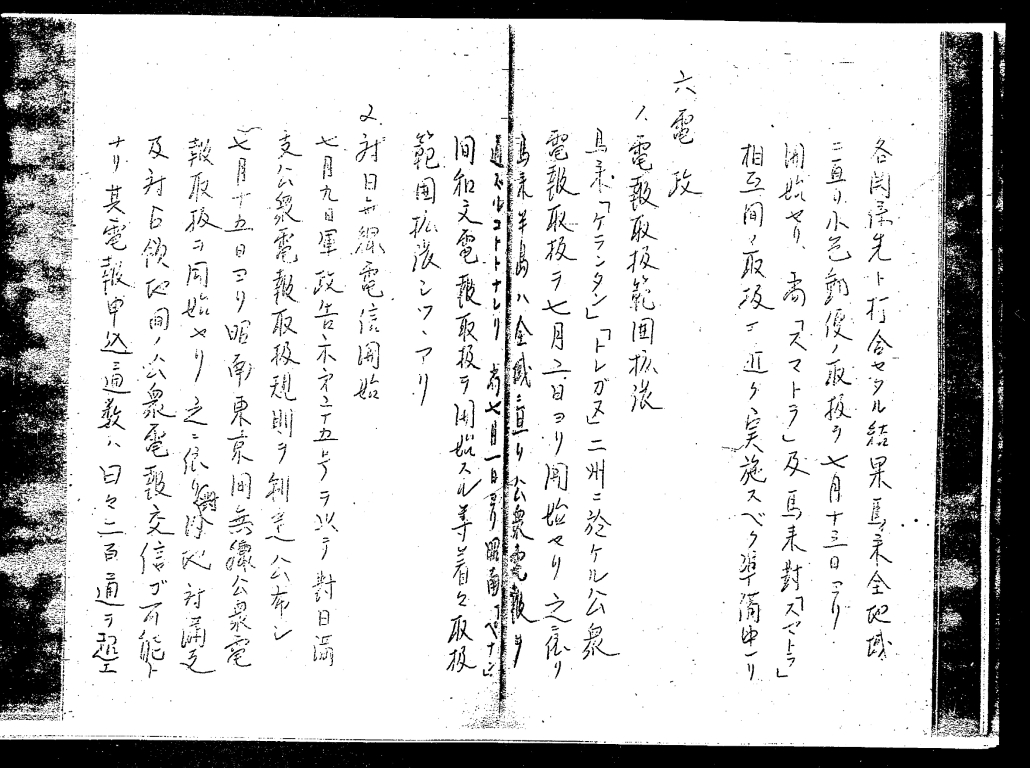 各関係先ト打合セタル結果馬来全地域
ニ亘リ小包郵便ノ取扱ヲ七月十三日ヨリ
開始セリ、尚「スマトラ」及馬来対「スマトラ」
相互間ノ取扱モ近ク実施スベク準備中ナリ
六、電政
1、電報取扱範囲拡張
馬来「ケランタン」「トレガヌ」二州ニ於ケル公衆
電報取扱ヲ七月二日ヨリ開始セリ之ニ依リ
馬来半島ハ全域ニ亘リ公衆電報ヲ
通ズルコトトナレリ 尚七月一日ヨリ昭南「ペナン」
間和文電報取扱ヲ開始スル等着々取扱
範囲拡張シツヽアリ
2、対日無線電信開始
七月九日軍政告示第二十五号ヲ以テ対日満
支公衆電報取扱規則ヲ制定公布シ
七月十五日ヨリ昭南東京間無線公衆電
報取扱ヲ開始セリ 之ニ依リ当地対満支
及対占領地間ノ公衆電報交信ガ可能ト
ナリ其電報申込通数ハ日々二百通ヲ超エ